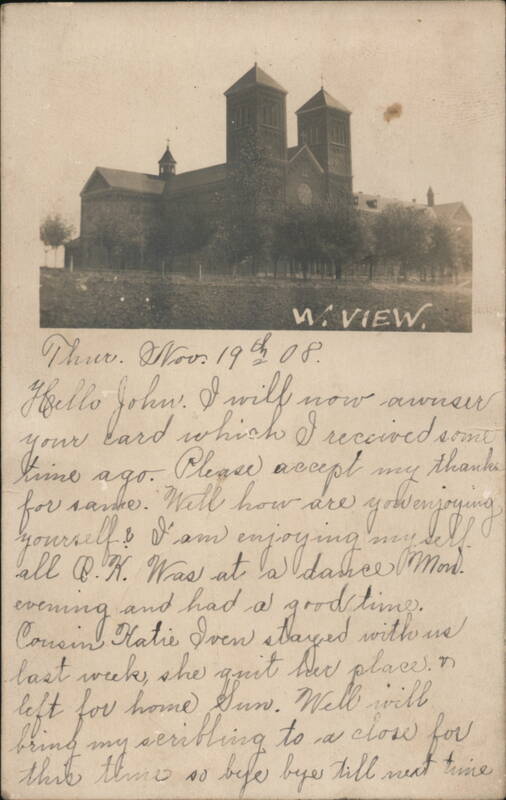 W. VIEW.
Thur. Nov. 19th 08.
Hello John. I will now awnser
your card which I received some
time ago. Please accept my thanks
for same. Well how are you enjoying
yourself? I am enjoying myself
all O.K. Was at a dance Mon.
evening and had a good time.
Cousin Katie Iven stayed with us
last week, she quit her place &
left for home Sun. Well will
bring my scribling to a close for
this time so bye bye till next time